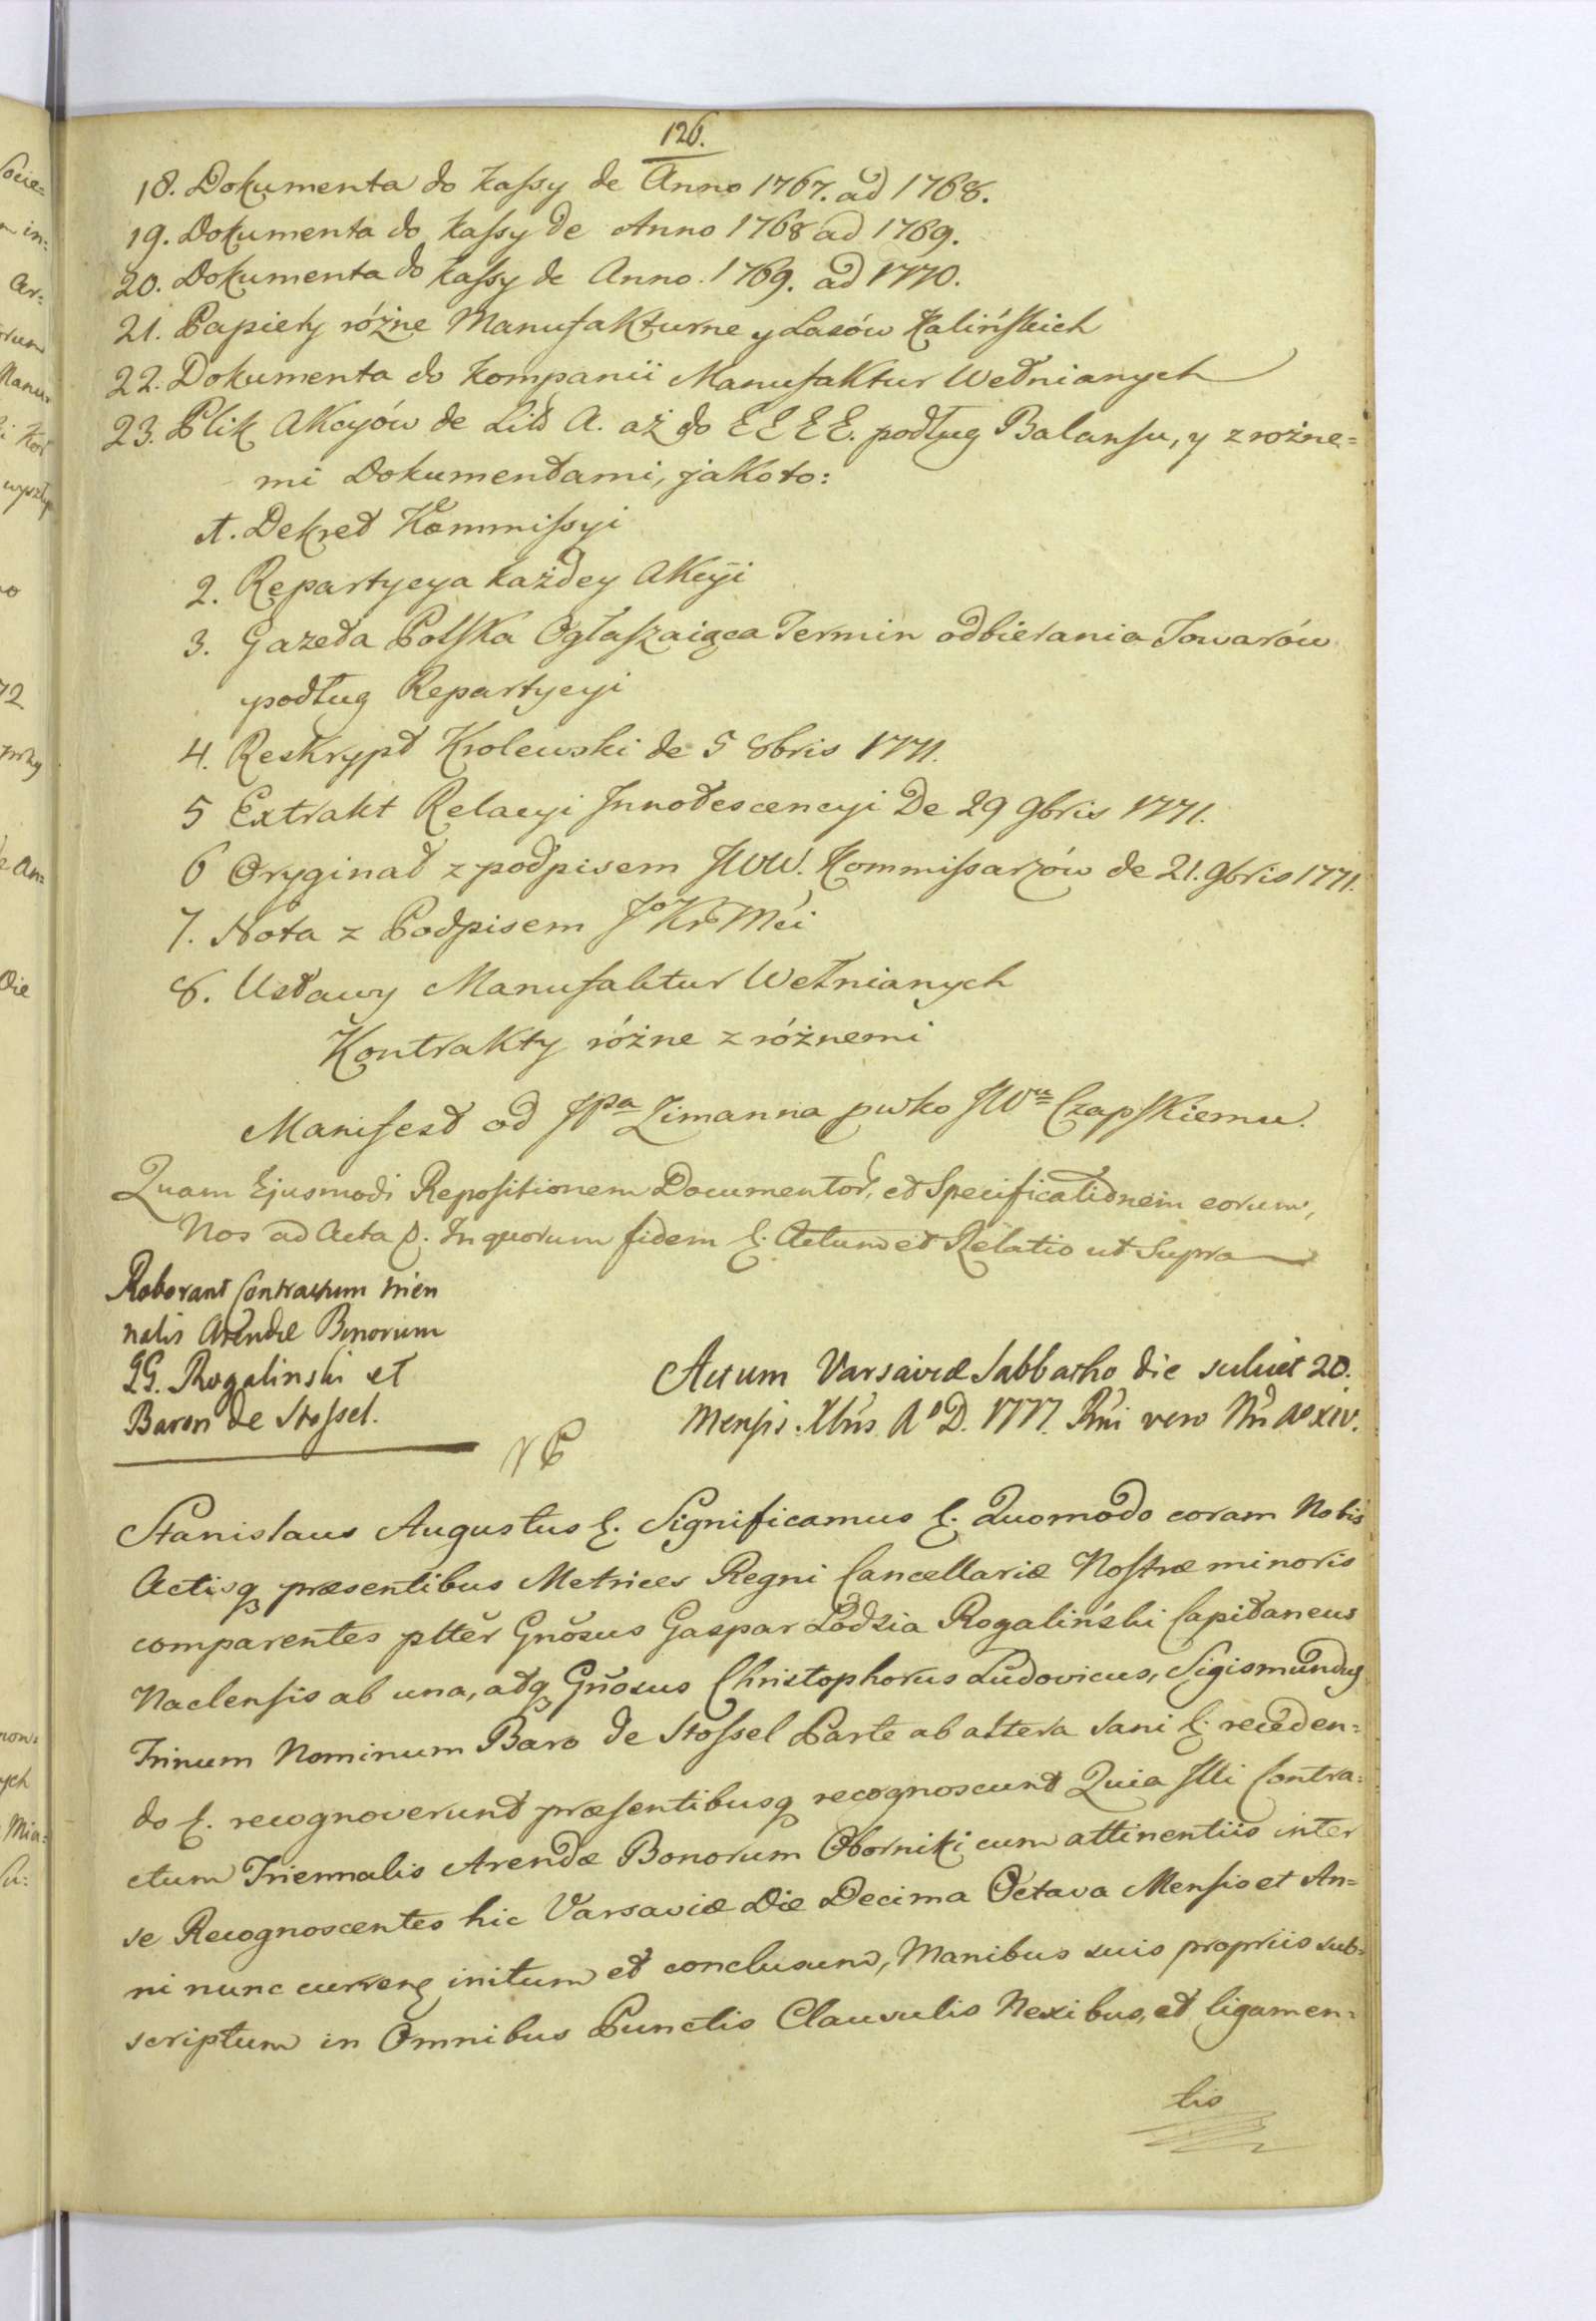 126.
18. Dokumenta do kassy de Anno 1767. ad 1768.
19. Dokumenta do kassy de Anno 1768 ad 1769.
20. Dokumenta do kassy de Anno. 1769. ad 1770.
21. Papiery różne Manufakturne y Lasów Kalińskich
22. Dokumenta do Kompanii Manufaktur Wełnianych
23. Plik Akcyów de Litt A. aż do EEEE. podług Balansu, y z rożne=
mi Dokumentami, jako to:
1. Dekret Kommissyi
2. Repartycya każdey Akcyi
3. Gazeta Polska Ogłaszaiąca Termin odbierania Towarów
podług Repartycyi
4. Reskrypt Krolewski de 5 8bris 1771.
5 Extrakt Relacyi Innotescencyi De 29 9bris 1771.
6 Oryginał z podpisem JWW. Kommissarzów de 21. 9bris 1771.
7. Nota z Podpisem Jo Kr Mći
8. Ustawy Manufaktur Wełnianych
Kontrakty różne z różnemi
Manifest od JPa Zimanna pwko JWu Czapskiemu.
Quam Ejusmodi Repositionem Documentor, et Specificationem eorum,
Nos ad Acta p. In quorum fidem &. Actum et Relatio ut Supra
Roborant Contractum trien
nalis Arendæ Bonorum
GG. Rogalinski et
Baron de Stossel.
Actum Varsaviæ Sabbatho die scilicet 20.
Mensis Xbris Ao D. 1777. Rni vero Nri Ao XIV.
Stanislaus Augustus &. Significamus &. Quomodo coram Nobis
Actisq præsentibus Metrices Regni Cancellariæ Nostræ minoris
comparentes pltter Gnosus Gaspar Łodzia Rogaliński Capitaneus
Naclensis ab una, atq Gnosus Christophorus Ludovicus, Sigismundus
Trinum Nominum Baro de Stossel Parte ab altera sani &. receden=
do &. recognoverunt præsentibusq recognoscunt Quia Illi Contra=
ctum Triennalis Arendæ Bonorum Oborniki cum attinentiis inter
se Recognoscentes hic Varsaviæ Die Decima Octava Mensis et An=
ni nunc curren initum et conclusum, Manibus suis propriis sub=
scriptum in Omnibus Punctis Clausulis Nexibus, et ligamen=
tis